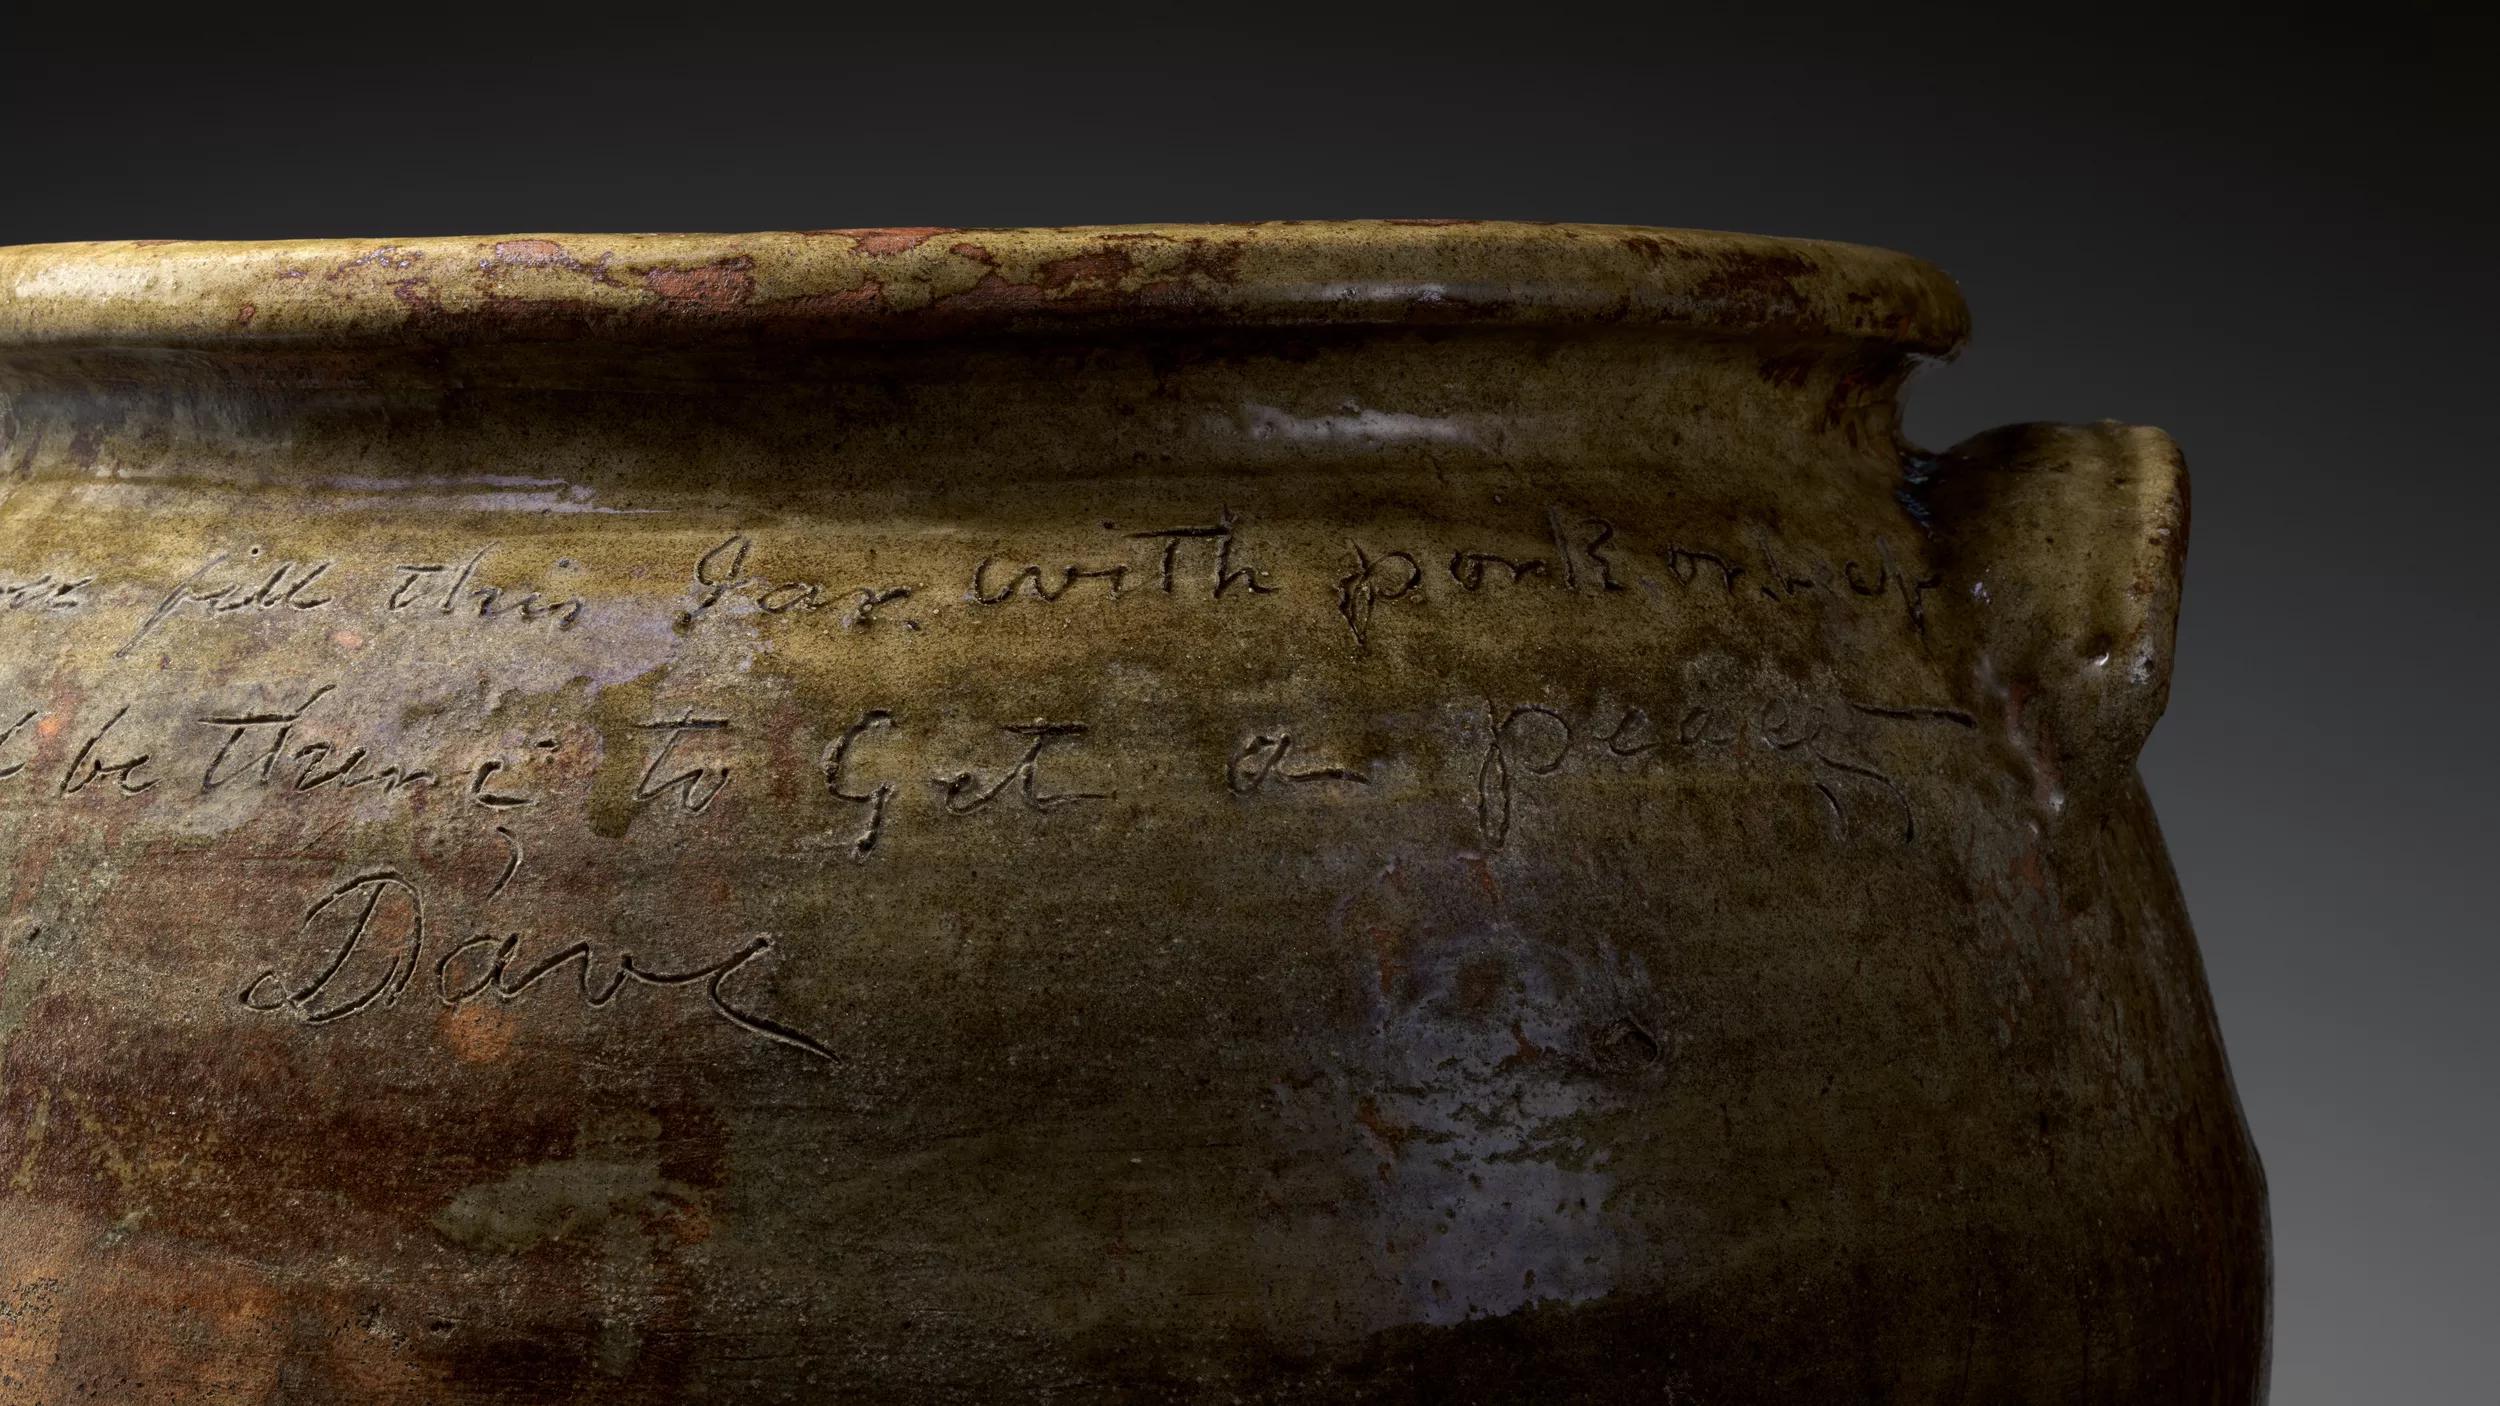 fill this Jar with pork or beef
be there; to Get a peace,
Dave